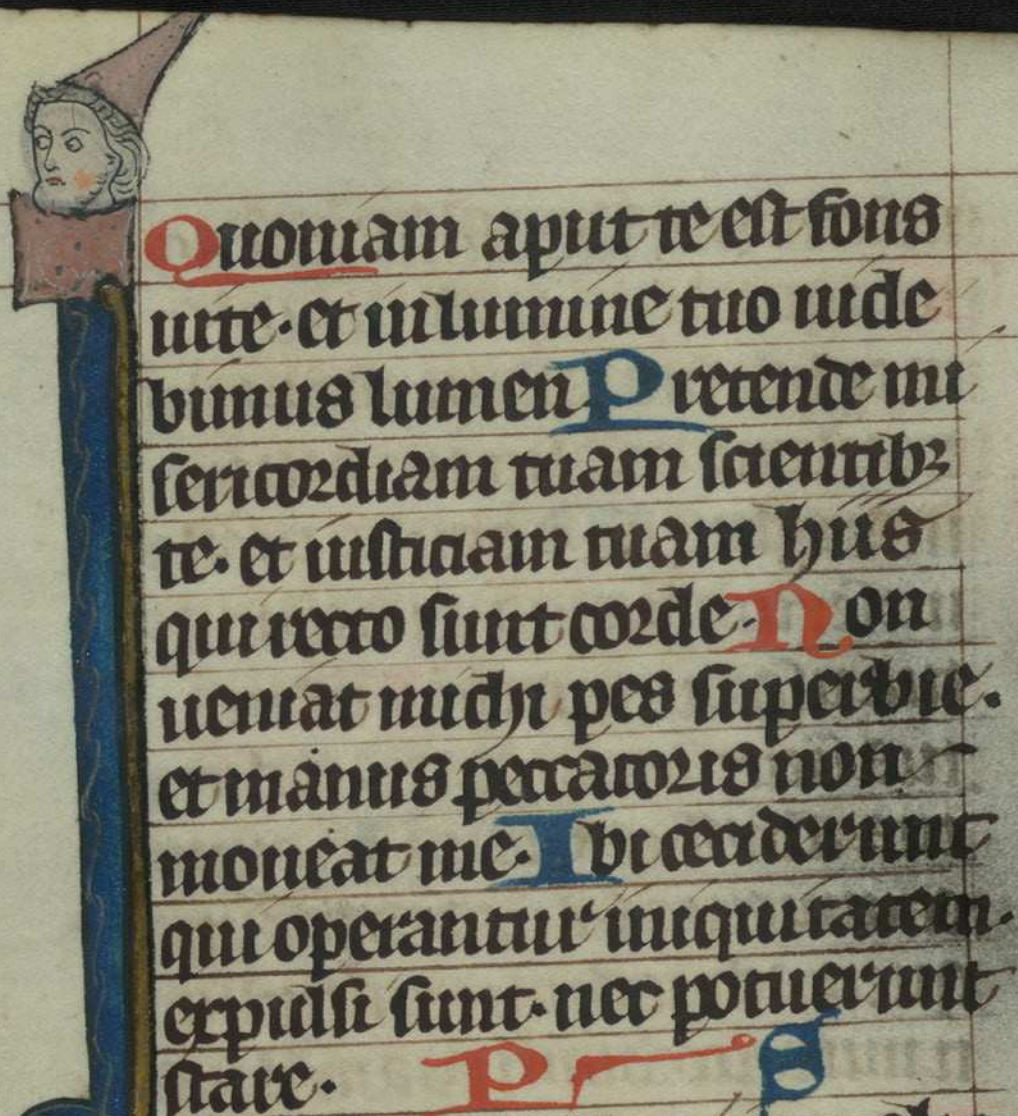 Quoniam aput te est fons
uite · et in lumine tuo uide
bimus lumen Pretende mi
sericordiam tuam scientibꝫ
te · et iusticiam tuam hiis
qui recto sunt corde · Non
ueniat michi pes superbie ·
et manus peccatoris non
moueat me · Ibi ceciderunt
qui operantur iniquitatem ·
expulsi sunt · nec potuerunt
stare · P S